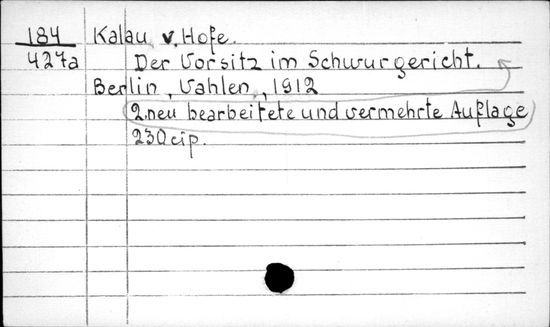 184 Kalau v. Hofe.
427a Der Vorsitz im Schwurgericht.
Berlin, Vahlen, 1912
2. neu bearbeitete und vermehrte Auflage
230 cip.